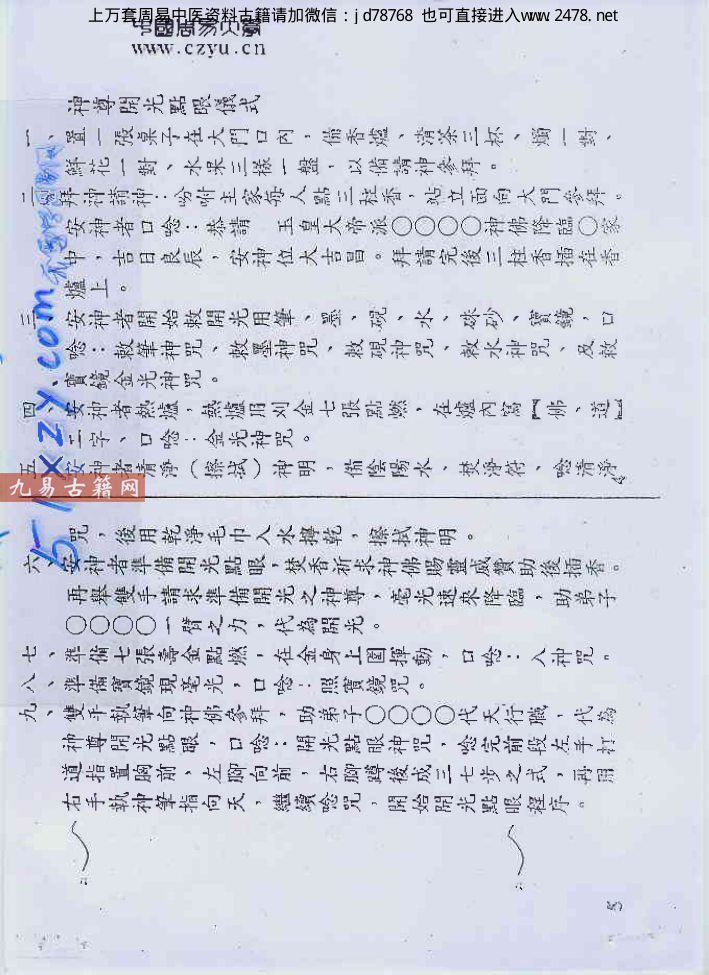 上万套周易中医资料古籍请加微信：jd78768 也可直接进入www.2478.net
中國周易大學
www.czyu.cn
神尊開光點眼儀式
一、置一張桌子在大門口內，備香爐、清茶三杯、燭一對、
鮮花一對、水果三樣一盤，以備請神參拜。
二、拜神請神：吩咐主家每人點三柱香，站立面向大門參拜。
安神者口唸：恭請 玉皇大帝派○○○○神佛降臨○家
中，吉日良辰，安神位大吉昌。拜請完後三柱香插在香
爐上。
三、安神者開始敕開光用筆、墨、硯、水、硃砂、寶鏡，口
唸：敕筆神咒、敕墨神咒、敕硯神咒、敕水神咒、及敕
寶鏡金光神咒。
四、安神者熱爐，熱爐用刈金七張點燃，在爐內寫【佛、道】
二字、口唸：金光神咒。
五、安神者清淨（擦拭）神明，備陰陽水、焚淨符、唸清淨
九易古籍网
咒，後用乾淨毛巾入水擰乾，擦拭神明。
六、安神者準備開光點眼，焚香祈求神佛賜靈威贊助後插香。
再舉雙手請求準備開光之神尊，毫光速來降臨，助弟子
○○○○一臂之力，代為開光。
七、準備七張壽金點燃，在金身上圍揮動，口唸：入神咒。
八、準備寶鏡現毫光，口唸：照寶鏡咒。
九、雙手執筆向神佛參拜，助弟子○○○○代天行職，代為
神尊開光點眼，口唸：開光點眼神咒，唸完前段左手打
道指置胸前，左腳向前，右腳蹲後成三七步之式，再用
右手執神筆指向天，繼續唸咒，開始開光點眼程序。
5